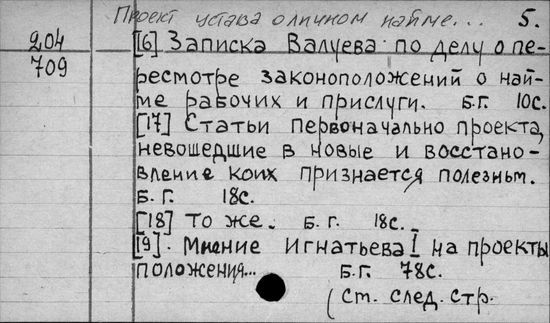 Проект устава о личном найме... 5.
204 [16] Записка Валуева по делу о пе-
709 ресмотре законоположений о най-
ме рабочих и прислуги. Б.Г. 10с.
[17] Статьи первоначально проекта,
невошедшие в новые и восстано-
вление коих признается полезным.
Б.Г. 18с.
[18] То же. Б.Г. 18с.
[19]. Мнение Игнатьева I на проекты
положения... Б.Г. 78с.
(См. след. стр.